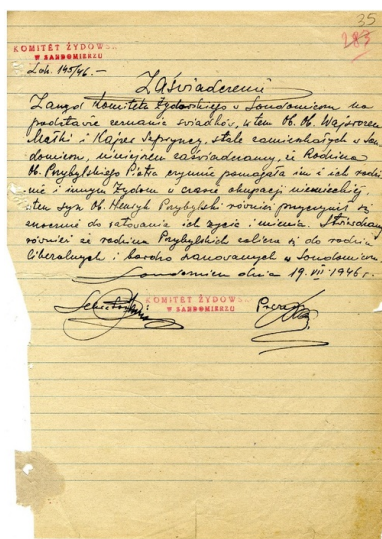 35
283
KOMITET ŻYDOWSKI
W SANDOMIERZU
L.dz. 145/46.-
Zaświadczenie
Zarząd Komitetu Żydowskiego w Sandomierzu na
podstawie zeznania świadków, w tem Ob. Ob. Wajsworem
Matki i Kajzer Szpryncy, stale zamieszkałych w San-
domierzu, niniejszem zaświadczamy, iż Rodzina
Ob. Przybylskiego Piotra czynnie pomagała im i ich rodzi-
nie i innym Żydom w czasie okupacji niemieckiej,
w tem syn Ob. Henryk Przybylski również przyczynił się
znacznie do ratowania ich życia i mienia. Stwierdzamy
również że rodzina Przybylskich zalicza się do rodzin
liberalnych i bardzo szanowanych w Sandomierzu.
Sandomierz dnia 19.VII 1946 r.
Sekretarz:
KOMITET ŻYDOWSKI
W SANDOMIERZU
Prezes